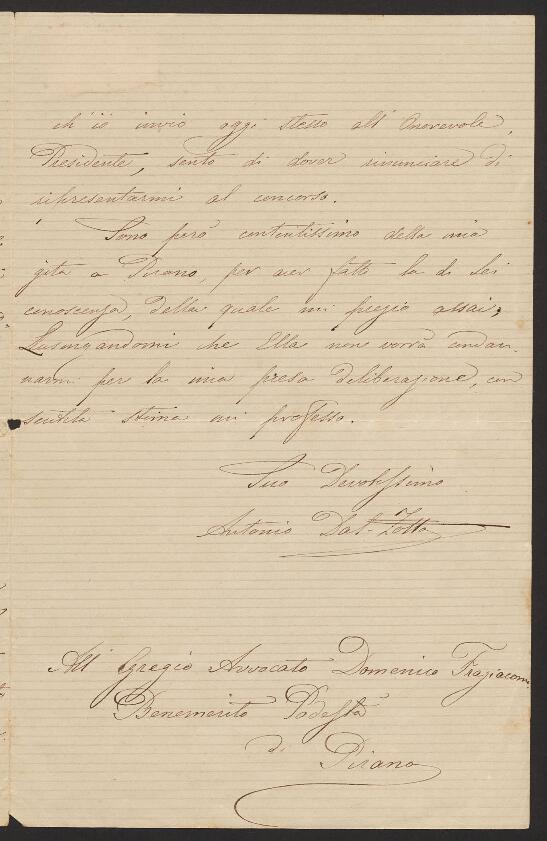 ch'io invio oggi stesso all'Onorevole
Presidente, sento di dover rinunciare di
ripresentarmi al concorso.
Sono però contentissimo della mia
gita a Pirano, per aver fatto la di Lei
conoscenza, della quale mi pregio assai;
Lusingandomi che Ella non vorrà condan-
narmi per la mia presa deliberazione, con
sentita stima mi professo.
Suo Devotissimo
Antonio Dal-Zotto
All'Egregio Avvocato Domenico Fragiacomo
Benemerito Podestà
di
Pirano